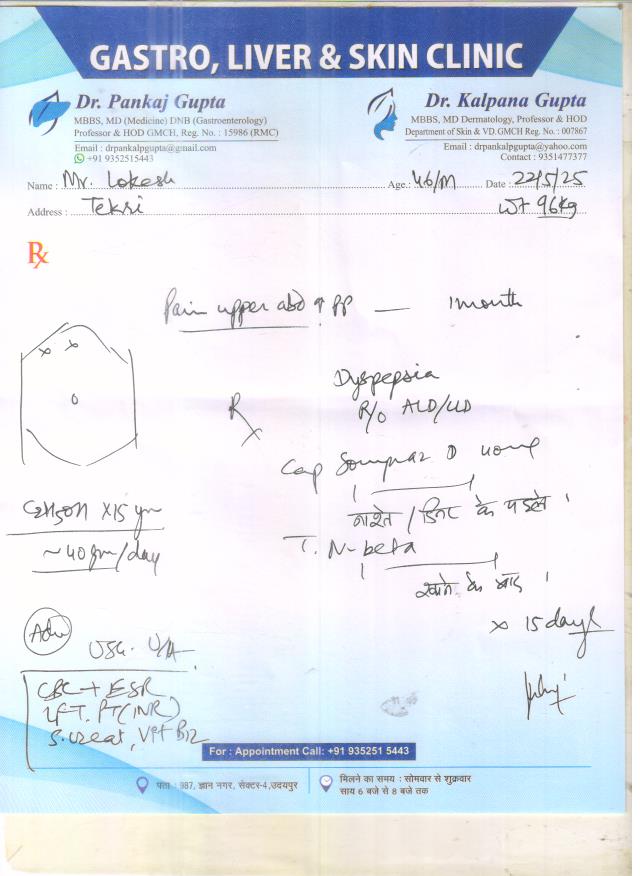 GASTRO, LIVER & SKIN CLINIC
Dr. Pankaj Gupta
MBBS, MD (Medicine) DNB (Gastroenterology)
Professor & HOD GMCH, Reg. No. : 15986 (RMC)
Email : drpankalpgupta@gmail.com
+91 9352515443
Dr. Kalpana Gupta
MBBS, MD Dermatology, Professor & HOD
Department of Skin & VD. GMCH Reg. No. : 007867
Email : drpankalpgupta@yahoo.com
Contact : 9351477377
Name : Mr. Lokesh Age : 46/M Date : 22/5/25
Address : Tekri Wt 96kg
Rx
Pain upper abd ↑ PP — 1 month
x x
0
Dyspepsia
Rx R/O ALD/
Cap D 40mg
नाश्ते / डिनर के पहले ।
C2H5OH x 15 yr
~ 40 gm/day
T. N-beta
खाने के बाद ।
x 15 days
Adv
USG. U/A
CBC + ESR
LFT. PT(INR)
S. creat, Vit B12
For : Appointment Call: +91 935251 5443
पता : 987, ज्ञान नगर, सेक्टर-4,उदयपुर
मिलने का समय : सोमवार से शुक्रवार
साय 6 बजे से 8 बजे तक